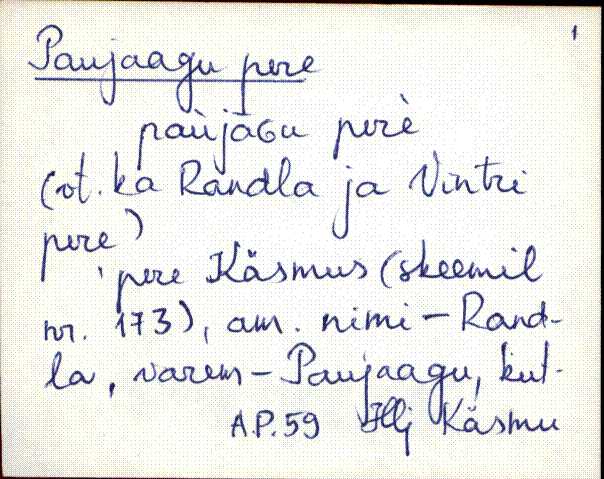 1
Paujaagu pere
paùjāɢu perè
(vt. ka Randla ja Vintri
pere)
pere Käsmus (skeemil
nr. 173), am. nimi - Rand-
la, varem - Paujaagu, kut-
A.P. 59 Hlj Käsmu